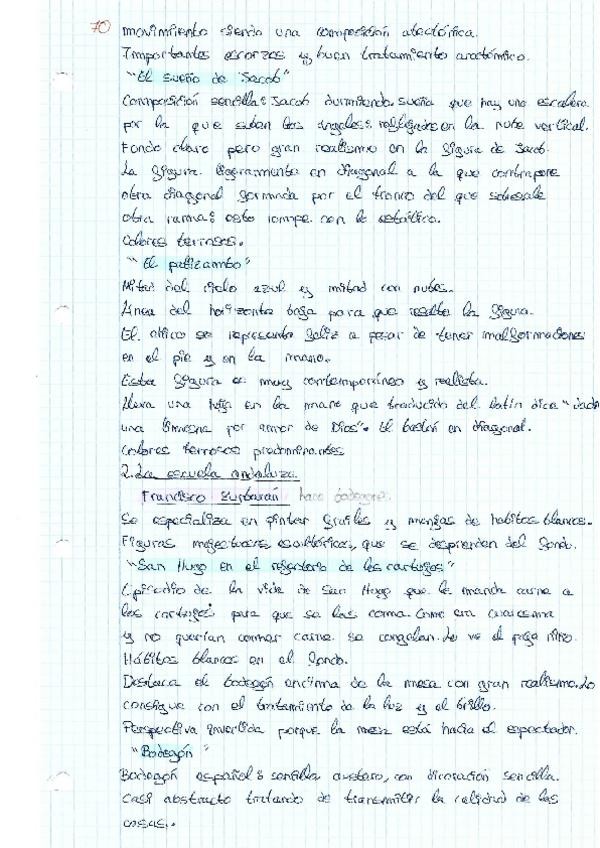 70 movimiento siendo una composición atectónica.
Importantes escorzos y buen tratamiento anatómico.
"El sueño de Jacob"
Composición sencilla: Jacob durmiendo, sueña que hay una escalera
por la que suben los ángeles: reflejados en la nube vertical.
Fondo claro pero gran realismo en la figura de Jacob.
La figura ligeramente en diagonal a la que contrapone
otra diagonal formada por el tronco del que sobresale
otra rama; esto rompe con lo estático.
Colores terrosos.
"El patizambo"
Mitad del cielo azul y mitad con nubes.
Línea del horizonte baja para que resalte la figura.
El chico se representa feliz a pesar de tener malformaciones
en el pie y en la mano.
Esta figura es muy contemporánea y realista.
Lleva una hoja en la mano que traducido del latín dice "dadme
una limosna por amor de Dios". El bastón en diagonal.
Colores terrosos predominantes
2. La escuela andaluza.
Francisco Zurbarán: hace bodegones.
Se especializa en pintar frailes y monjas de habitos blancos.
Figuras majestuosas escultóricas, que se desprenden del fondo.
"San Hugo en el refectorio de los cartujos"
Episodio de la vida de San Hugo que le manda carne a
los cartujos para que se las coma. Como era cuaresma
y no querían comer carne se congelan. Lo ve el paje niño.
Hábitos blancos en el fondo.
Destaca el bodegón encima de la mesa con gran realismo. Lo
consigue con el tratamiento de la luz y el brillo.
Perspectiva invertida porque la mesa está hacia el espectador.
"Bodegón"
Bodegón español: sencillo, austero, con decoración sencilla.
Casi abstracto tratando de transmitir la calidad de las
cosas.